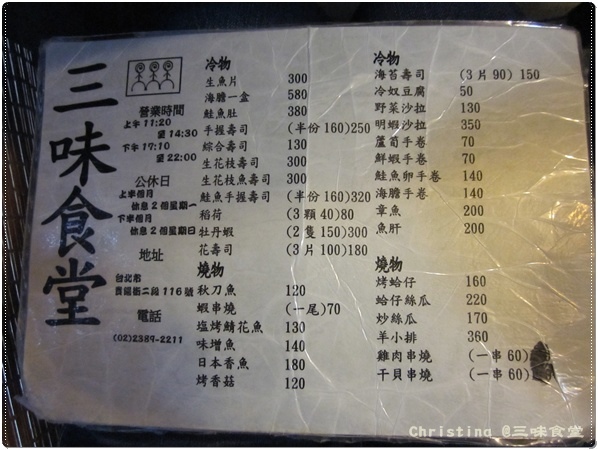 三味食堂
營業時間
上午11:20
至14:30
下午17:10
至22:00
公休日
上半個月
休息2個星期一
下半個月
休息2個星期日
地址
台北市
貴陽街二段116號
電話
(02)2389-2211
冷物
生魚片 300
海膽一盒 580
鮭魚肚 380
手握壽司 (半份160)250
綜合壽司 130
生花枝壽司 300
生花枝魚壽司 300
鮭魚手握壽司 (半份160)320
稻荷 (3顆40)80
牡丹蝦 (2隻150)300
花壽司 (3片100)180
燒物
秋刀魚 120
蝦串燒 (一尾)70
塩烤鯖花魚 130
味增魚 140
日本香魚 180
烤香菇 120
冷物
海苔壽司 (3片90)150
冷奴豆腐 50
野菜沙拉 130
明蝦沙拉 350
蘆筍手卷 70
鮮蝦手卷 70
鮭魚卵手卷 140
海膽手卷 140
章魚 200
魚肝 200
燒物
烤蛤仔 160
蛤仔絲瓜 220
炒絲瓜 170
羊小排 360
雞肉串燒 (一串60)
干貝串燒 (一串60)
Christina @三味食堂